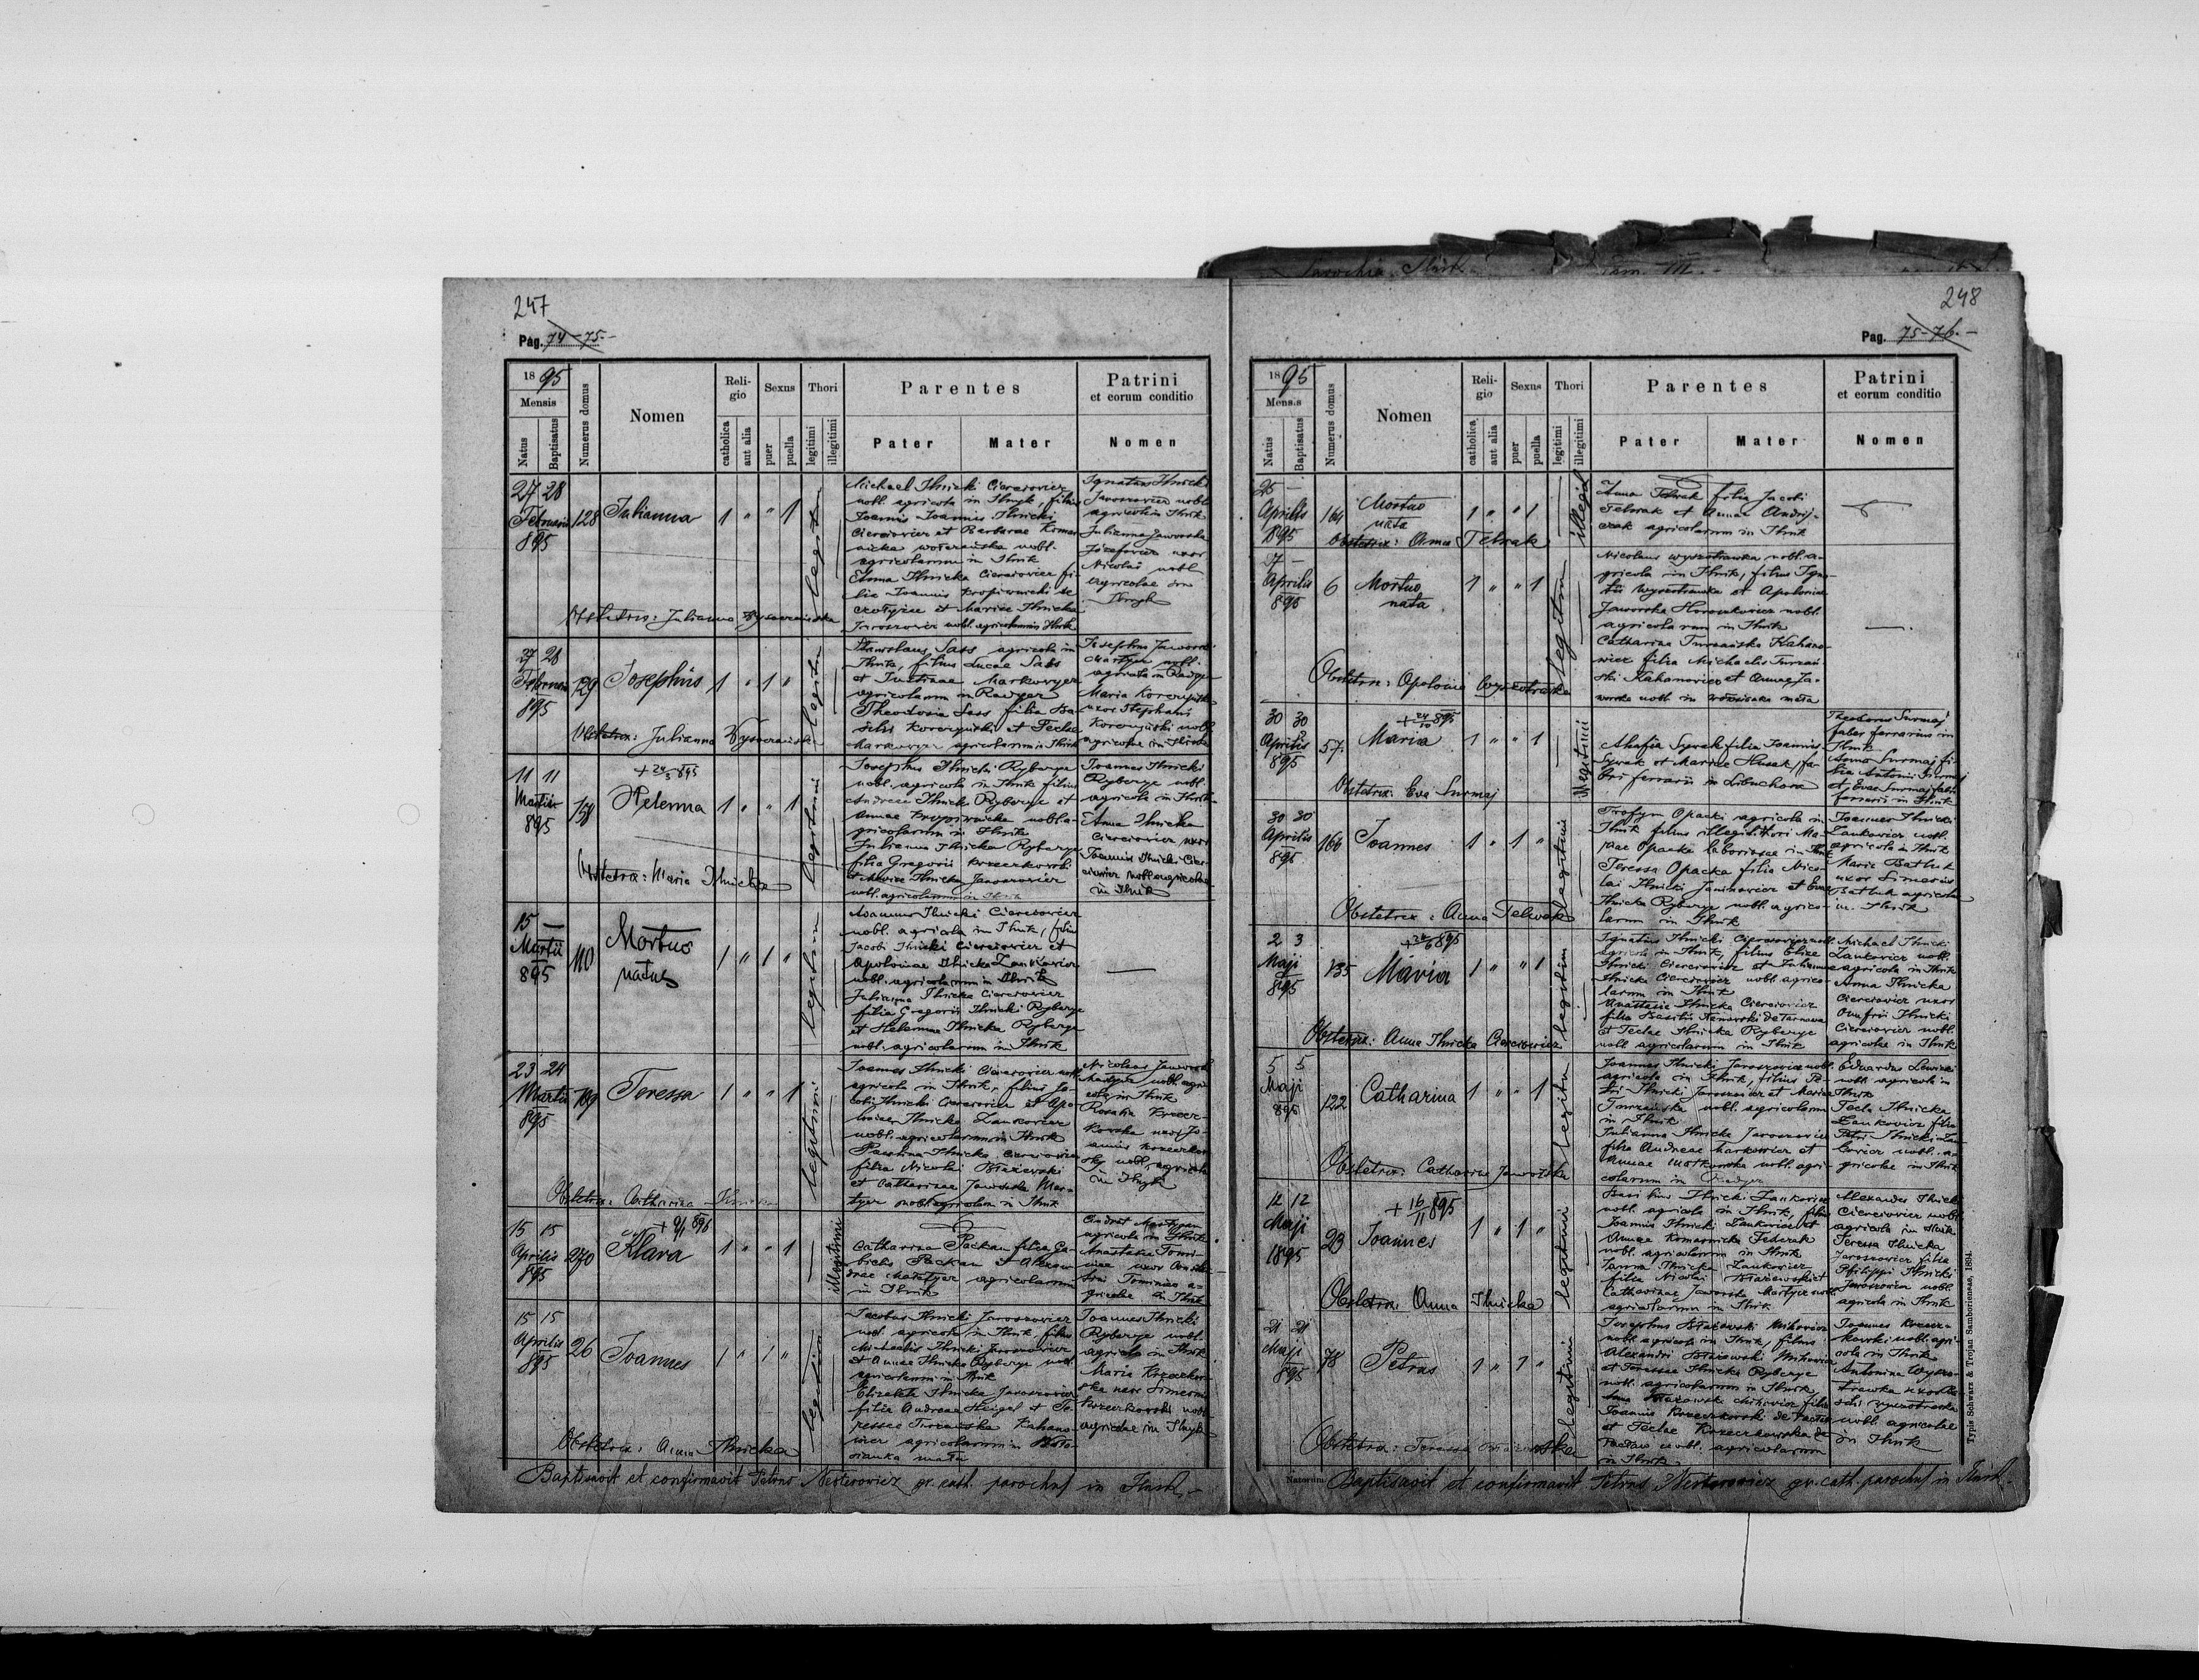 Parochia Ilnik Tom. III.
247
Pag. 74-75-
1895
Mensis
Natus
Baptisatus
Numerus domus
Nomen
Religio
catholica
aut alia
Sexus
puer
puella
Thori
legitimi
illegitimi
Parentes
Pater Mater
Patrini
et eorum conditio
Nomen
27 28
Februarii
895
128
Julianna
1 " " 1
legitimi
Michael Ilnicki Cierciowicz
nobl. agricola in Ilnyk, filius
Joannis Ilnicki
Cierciowicz et Barbarae
nobl.
agricolarum in Ilnik
Ilnicka Cierciowicz fi-
lia Joannis Kropiwnicki
et Mariae Ilnicka
Jaroszowicz nobl. agricolarum in Ilnik
Ignatius Ilnicki
Jaroszowicz nobl.
agricola in Ilnik
Julianna Jaworska
Józefowicz uxor
Nicolai nobl.
agricolae in
Ilnyk
Obstetrix: Julianna
27 28
Februarii
895
129
Josephus
1 " 1 "
legitimi
Stanislaus Sass agricola in
Ilnik, filius Lucae Sass
et Justinae Markowyez
agricolarum in Radycz
Theodosia Sass filia Ba-
silii Korczyński et Teclae
Markowycz agricolarum in Ilnik
Josephus Jaworski
Martycz nobl.
agricola in Radycz
Maria Korczyńska
uxor Stephani
Korczyński nobl.
agricolae in Ilnik
Obstetrix: Julianna
11 11
Martii
895
158
+ 24/3 895
Helenna
1 " " 1
legitimi
Josephus Ilnicki Ryberycz
nobl. agricola in Ilnik filius
Andreae Ilnicki Ryberycz et
Annae Kropiwnicka nobl. a-
gricolarum in Ilnik
Julianna Ilnicka Ryberycz
filia Gregorii
et Mariae Ilnicka Jaroszowicz
nobl. agricolarum in Ilnik
Joannes Ilnicki
Ryberycz nobl.
agricola in Ilnik
Anna Ilnicka
Cierciowicz uxor
Joannis Ilnicki Cier-
ciowicz nobl. agricolae
in Ilnik
Obstetrix: Maria Ilnicka
15 —
Martii
895
110
Mortuo
natus
1 " 1 "
legitimi
Joannes Ilnicki Cierciowicz
nobl. agricola in Ilnik, filius
Jacobi Ilnicki Cierciowicz et
Apoloniae Ilnicka Zankowicz
nobl. agricolarum in Ilnik
Julianna Ilnicka Cierciowicz
filia Gregorii Ilnicki Ryberycz
et Helennae Ilnicka Ryberycz
nobl. agricolarum in Ilnik
—
23 24
Martii
895
109
Teressa
1 " " 1
legitimi
Joannes Ilnicki Cierciowicz nobl.
agricola in Ilnik, filius Ja-
cobi Ilnicki Cierciowicz et Apo-
loniae Ilnicka Zankowicz
nobl. agricolarum in Ilnik
Paulina Ilnicka Cierciowicz
filia Nicolai Błażewski
et Catherinae Jaworska Mar-
tycz nobl. agricolarum in Ilnik
Nicolaus Jaworski
Martycz nobl. agri-
cola in Ilnik
Rosalia Krzecz-
kowska uxor Jo-
annis Krzeczkow-
sky nobl. agricola
in Ilnyk
Obstetrix: Catharina Ilnicka
15 15
Aprilis
895
270
Klara
1 " " 1
illegitimi
Catharina Packan filia Ga-
brielis Packan et Alexan-
drae agricolarum
in Ilnik
agricola in Ilnik
Anastasia Tomi-
niec uxor
Tominiec a-
gricolae in Ilnik
15 15
Aprilis
895
26
Joannes
1 " 1 "
legitimi
Jacobus Ilnicki Jaroszowicz
nobl. agricola in Ilnik filius
Michaelis Ilnicki Jaroszowicz
et Annae Ilnicka Ryberycz nobl.
agricolarum in Ilnik
Elizabeta Ilnicka Jaroszowicz
filia Andreae Heigel et Te-
ressae Turzańska Kahano-
wicz agricolarum in
nata
Joannes Ilnicki
Ryberycz nobl.
agricola in Ilnik
Maria Krzeczkow-
ska uxor Simeonis
Krzeczkowski nobl.
agricolae in Ilnyk
Obstetrix: Anna Ilnicka
Baptisavit et confirmavit Petrus Nesterowicz gr. cath. parochus in Ilnik.-
248
Pag. 75-76.-
1895
Mensis
Natus
Baptisatus
Numerus domus
Nomen
Religio
catholica
aut alia
Sexus
puer
puella
Thori
legitimi
illegitimi
Parentes
Pater Mater
Patrini
et eorum conditio
Nomen
25 —
Aprilis
1895
164
Mortuo
nata
1 " " 1
illegit
Anna Telwak filia Jacobi
Telwak et Annae Andrij-
czak agricolarum in Ilnik
Obstetrix: Anna Telwak
7 —
Aprilis
895
6
Mortuo
nata
1 " " 1
legitimi
Nicolaus Wysoczańska nobl. a-
gricola in Ilnik, filius Igna-
tii et Apoloniae
Jaworska nobl.
agricolarum in Ilnik
Catharina Turzańska Kahano-
wicz filia Michaelis Turzań-
ski Kahanowicz et Annae Ja-
worska nobl. in nata
—
Obstetrix: Apolonia
30 30
Aprilis
895
57.
+ 24/10 895
Maria
1 " " 1
illegitimi
Ahafia Sywak filia Joannis
Sywak et Mariae Husak, fa-
bri ferrarii in Libuchora
Theodorus Surmaj
faber ferrarius in
Ilnik
Anna Surmaj fi-
lia Antonii Surmaj
et Evae Surmaj fabri
ferrarii in Ilnik
Obstetrix: Eva Surmaj
30 30
Aprilis
895
166
Joannes
1 " 1 "
legitimi
Trofym Opacki agricola in
Ilnik filius illegit. tori Ma-
riae Opacka laboriosae in Ilnik
Teressa Opacka filia Nico-
lai Ilnicki Janinowicz et Evae
Ilnicka Ryberycz nobl. agrico-
larum in Ilnik
Joannes Ilnicki
Zankowicz nobl.
agricola in Ilnik
Maria Batluk
uxor Simeonis
Batluk agricolae
in Ilnik
Obstetrix: Anna Telwak
2 3
Maji
895
135
+ 24/6 895
Maria
1 " " 1
legitimi
Ignatius Ilnicki Cierciowicz nobl.
agricola in Ilnik, filius Eliae
Ilnicki Cierciowicz et Julianna
Ilnicka Cierciowicz nobl. agrico-
larum in Ilnik
Anastasia Ilnicka Cierciowicz
filia Basilii de Tarnawa
et Teclae Ilnicka Ryberycz
nobl. agricolarum in Ilnik
Michael Ilnicki
Zankowicz nobl.
agricola in Ilnik
Anna Ilnicka
Cierciowicz uxor
Onufrii Ilnicki
Cierciowicz nobl.
agricolae in Ilnik
Obstetrix: Anna Ilnicka Cierciowicz
5 5
Maji
895
122
Catharina
1 " " 1
legitimi
Joannes Ilnicki Jaroszowicz nobl.
agricola in Ilnik, filius Pe-
tri Ilnicki Jaroszowicz et Mariae
Turzańska nobl. agricolarum
in Ilnik
Julianna Ilnicka Jaroszowicz
filia Andreae Markowicz et
Annae nobl. agri-
colarum in Radycz
Eduardus Lewicki
nobl. agricola in
Ilnik
Tecla Ilnicka
Zankowicz filia
Petri Ilnicki Zan-
kowicz nobl. a-
gricolae in Ilnik
Obstetrix: Catharina Jaworska
12 12
Maji
1895
23
+ 16/11 895
Joannes
1 " 1 "
legitimi
Basilius Ilnicki Zankowicz
nobl. agricola in Ilnik, filius
Joannis Ilnicki Zankowicz et
Annae Komarnicka Federak
nobl. agricolarum in Ilnik
Ilnicka Zankowicz
filia Nicolai Błażewski et
Catharinae Jaworska Martycz nobl.
agricolarum in Ilnik
Alexander Ilnicki
Cierciowicz nobl.
agricola in Ilnik
Teressa Ilnicka
Jaroszowicz filia
Philippi Ilnicki
Jaroszowicz nobl.
agricola in Ilnik
Obstetrix: Anna Ilnicka
21 21
Maji
895
78
Petrus
1 " 1 "
legitimi
Josephus Błażewski Mihowicz
nobl. agricola in Ilnik, filius
Alexandri Błażewski Mihowicz
et Teressae Ilnicka Ryberycz
nobl. agricolarum in Ilnik
Anna Błażewska Mihowicz filia
Joannis Krzeczkowski de
et Teclae Krzeczkowska de
nobl. agricolarum
in Ilnik
Joannes Krzecz-
kowski nobl. agri-
cola in Ilnik
Antonina
uxor Ba-
silii
nobl. agricolae
in Ilnik
Obstetrix: Teressa
Natorum
Baptisavit et confirmavit Petrus Nesterowicz gr. cath. parochus in Ilnik.-
Typis Schwarz & Trojan Samboriensae, 1894.